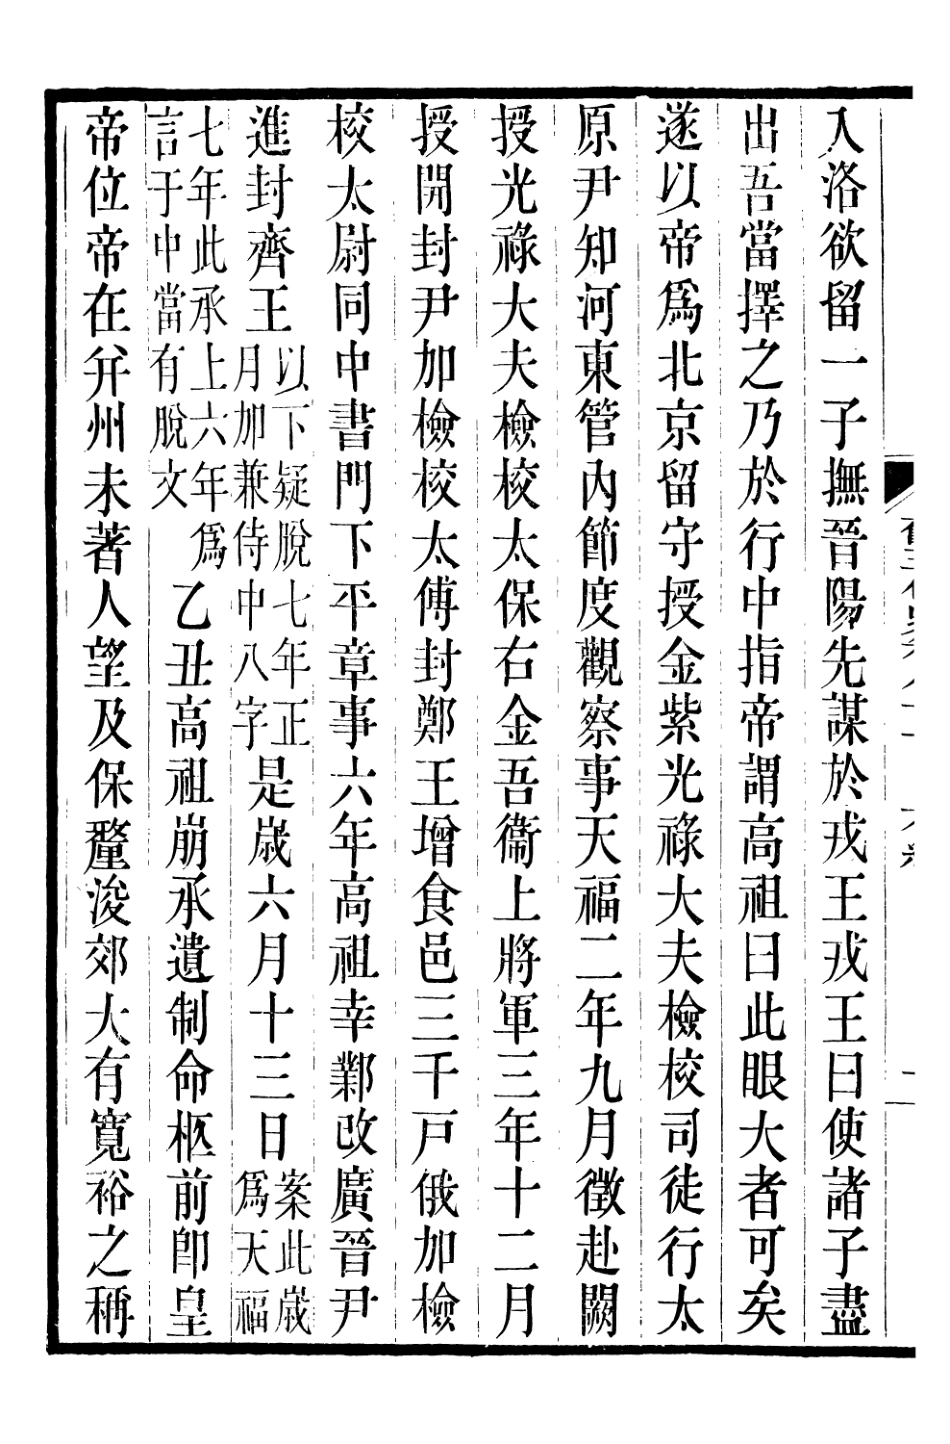 入洛欲留一子撫晉陽先謀於戎王戎王曰使諸子盡
出吾當擇之乃於行中指帝謂高祖曰此眼大者可矣
遂以帝爲北京留守授金紫光祿大夫檢校司徒行太
原尹知河東管內節度觀察事天福二年九月徵赴闕
授光祿大夫檢校太保右金吾衞上將軍三年十二月
授開封尹加檢校太傅封鄭王增食邑三千戸俄加檢
校太尉同中書門下平章事六年高祖幸鄴改廣晉尹
進封齊王以下疑脫七年正月加兼侍中八字是歲六月十三日案此歲爲天福
七年此承上六年爲言于中當有脫文乙丑高祖崩承遺制命柩前卽皇
帝位帝在幷州未著人望及保釐浚郊大有寬裕之稱